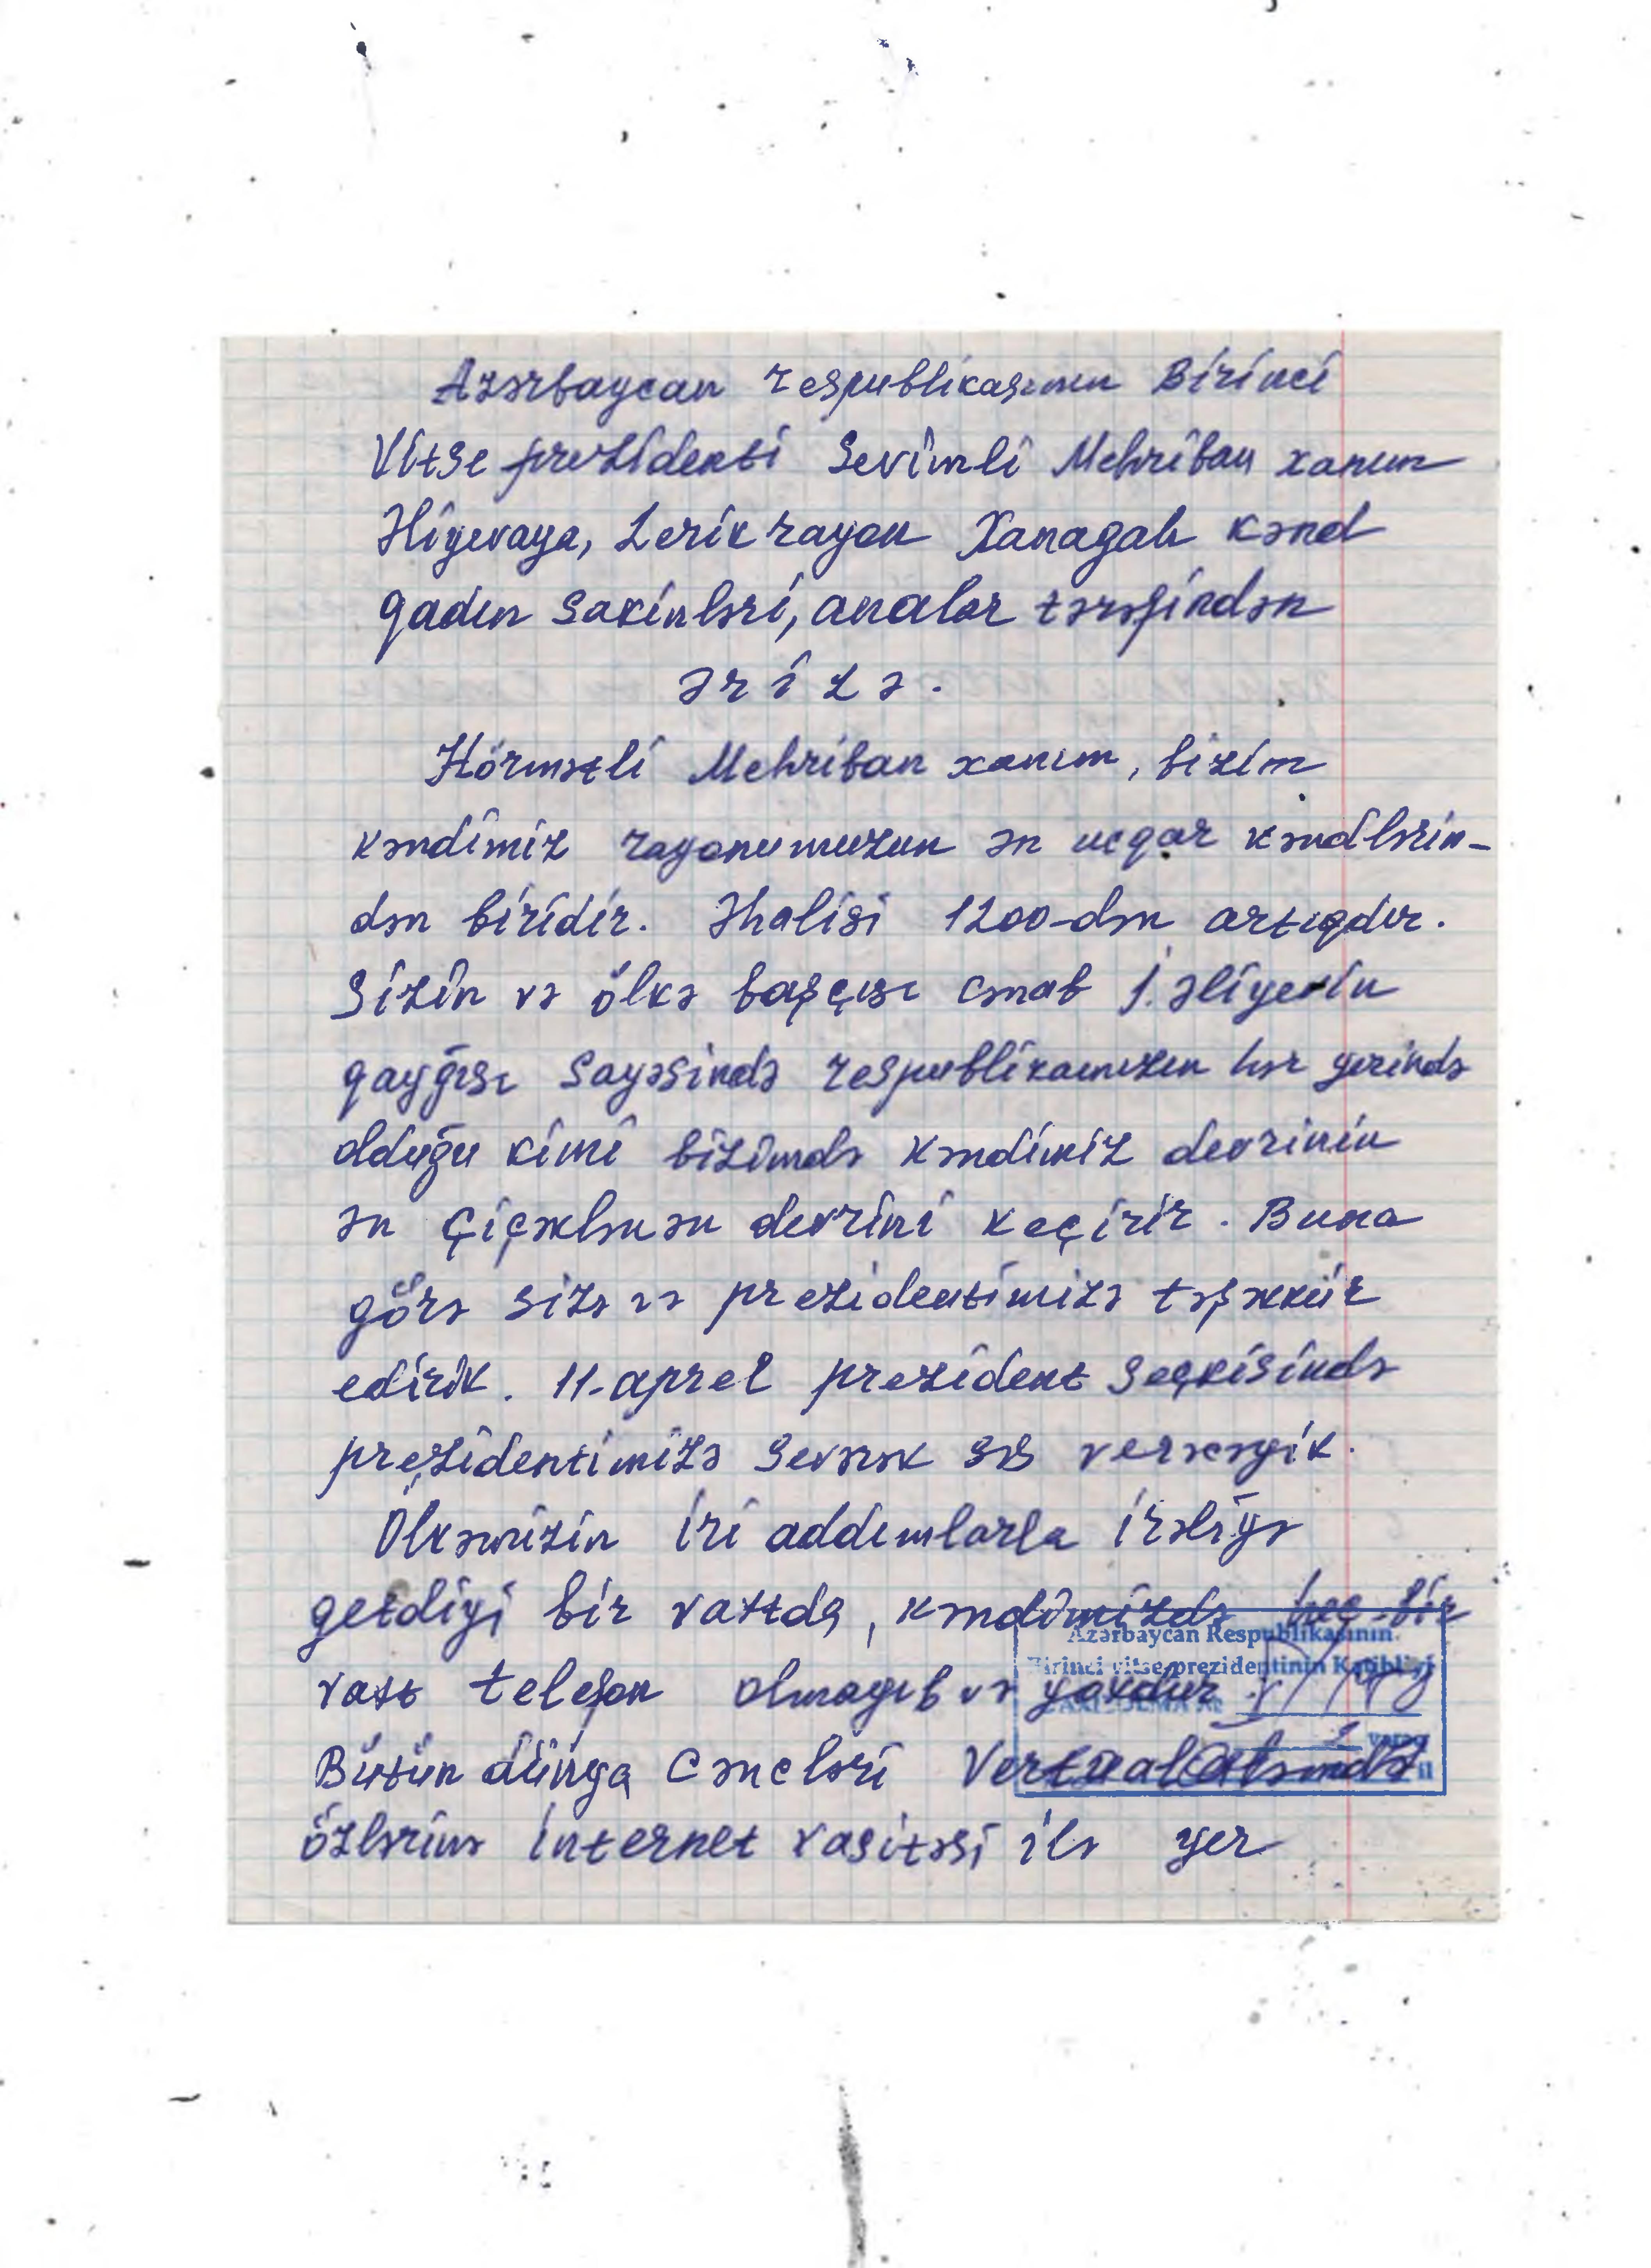 Azərbaycan respublikasının Birinci
Vitse prezidenti Sevimli Mehriban xanım
Əliyevaya, Lerik rayon Xanagah kənd
qadın sakinləri, analar tərəfindən
ərizə.
Hörmətli Mehriban xanım, bizim
kəndimiz rayonumuzun ən ucqar kəndlərin-
dən biridir. Əhalisi 1200-dən artıqdır.
Sizin və ölkə başçısı cənab İ. Əliyevin
qayğısı sayəsində respublikamızın hər yerində
olduğu kimi bizimdə kəndimiz devrinin
ən çiçəklənən devrini keçirir. Buna
görə sizə və prezidentimizə təşəkkür
edirik. 11-aprel prezident seçkisində
prezidentimizə sevərək səs verəcəyik.
Ölkəmizin iri addımlarla irəliyə
getdiyi bir vaxtda, kəndimizdə heç bir
vaxt telefon olmayıb və yoxdur.
Azərbaycan Respublikasının
Birinci vitse-prezidentinin Katibliyi
DAXİL OLMA №
2 vərəq
Bütün dünya cəncləri Vertual aləmdə
özlərinə internet vasitəsi ilə yer